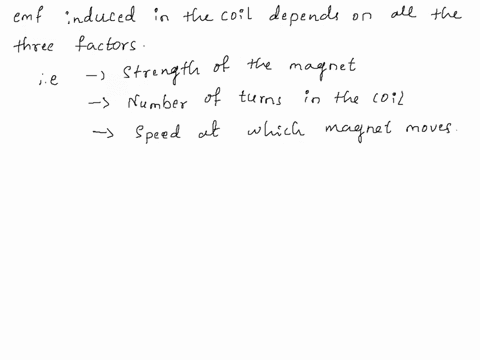 emf induced in the coil depends on all the
three factors.
i.e → Strength of the magnet
→ Number of turns in the coil
→ Speed at which magnet moves.